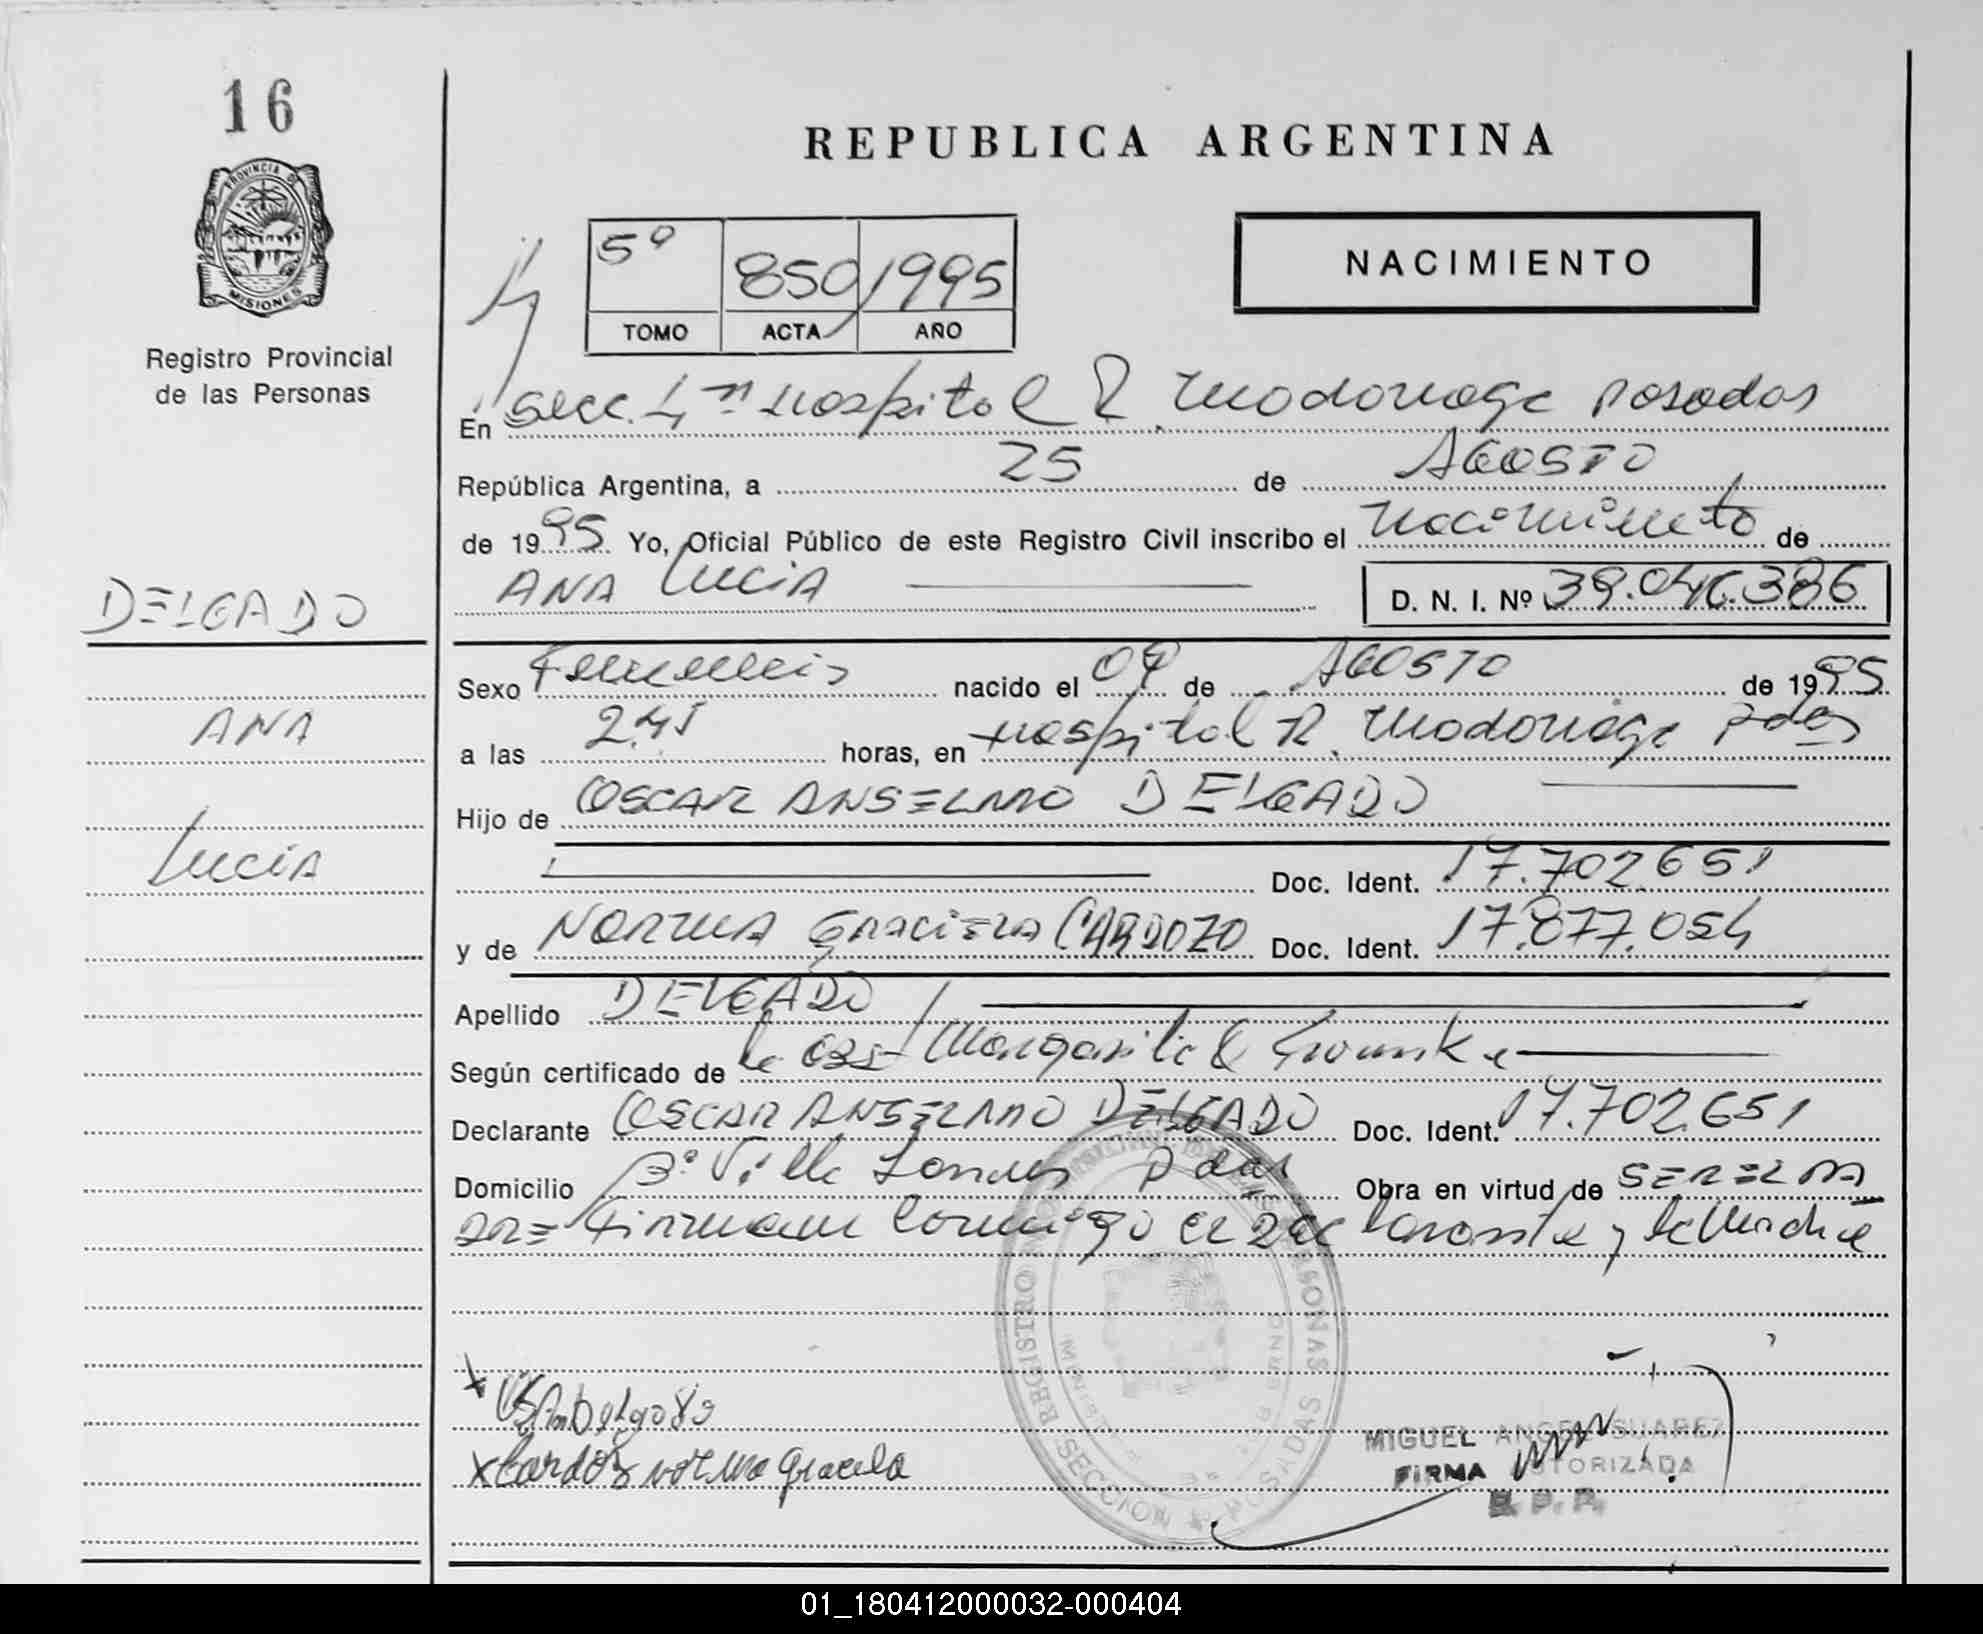 16
PROVINCIA DE
MISIONES
Registro Provincial
de las Personas
DELGADO
ANA
Lucia
REPUBLICA ARGENTINA
NACIMIENTO
5º 850 1995
TOMO ACTA AÑO
En Secc. 4ª Hospital R. Madariaga Posadas
República Argentina, a 25 de AGOSTO
de 1995 Yo, Oficial Público de este Registro Civil inscribo el nacimiento de
ANA Lucia D. N. I. Nº 39.046.386
Sexo Femenino nacido el 09 de AGOSTO de 1995
a las 2.45 horas, en Hospital R. Madariaga Pdas
Hijo de OSCAR ANSELMO DELGADO
Doc. Ident. 17.702.651
y de NORMA Graciela CARDOZO Doc. Ident. 17.877.054
Apellido DELGADO
Según certificado de la Obst Margarita
Declarante OSCAR ANSELMO DELGADO Doc. Ident. 17.702.651
Domicilio Bº Villa Pdas Obra en virtud de SER EL PA
DRE Firman conmigo el declarante y la Madre
REGISTRO PERSONAS
SECCION POSADAS
x Cardozo Norma Graciela
MIGUEL ANGEL SUAREZ
FIRMA AUTORIZADA
R. P. P.
01_180412000032-000404